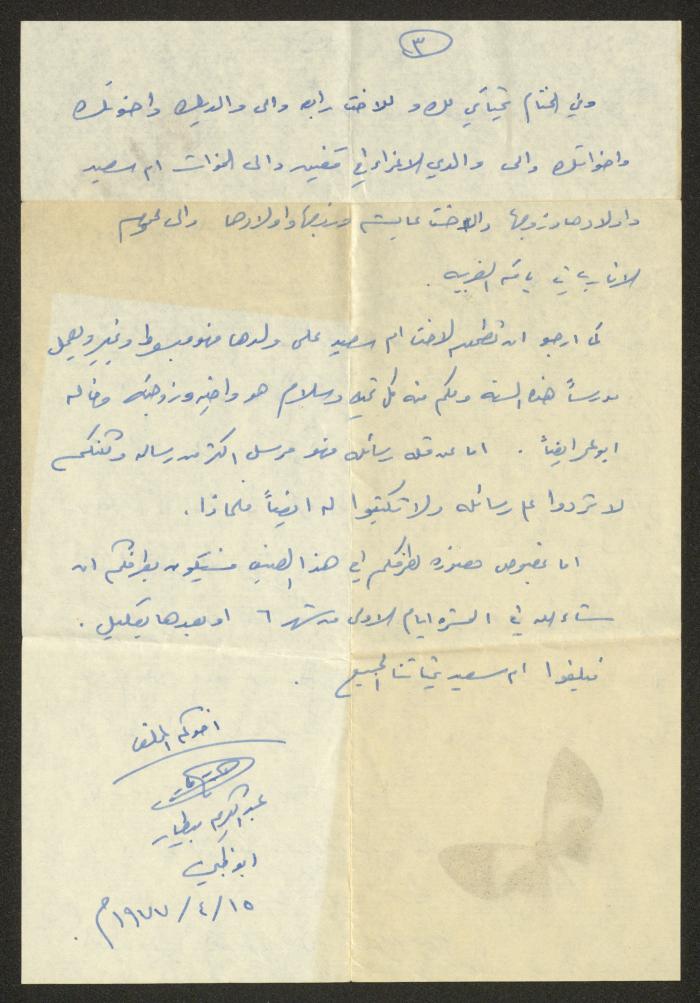 ٣
وفي الختام تحياتي لك وللاخت رابعه والى والديك واخوتك
واخواتك والى والدي الاعزاء في قفين والى اخوات ام سعيد
واولادها وزوجها والاخت عايشه وزوجها واولادها والى عموم
الاقارب في باقه الغربيه .
كما ارجو ان تطمئن الاخت ام سعيد على ولدها فهو مبسوط وبخير ويعمل
مدرساً هذه السنة ولكم منه كل تحيه وسلام هو واخيه وزوجته وخاله
ابو عمر ايضاً . اما عن قلة رسائله فهو مرسل اكثر من رساله ولكنكم
لا تردوا على رسائله ولا تكتبوا له ايضاً فلماذا .
اما بخصوص حضوره لطرفكم في هذا الصيف فسيكون بطرفكم ان
شاء الله في العشره ايام الاولى من شهر ٦ او بعدها بقليل .
فبلغوا ام سعيد تحياتنا الجميع .
اخوكم المخلص
عبد الكريم
ابوظبي
١٥/٤/١٩٧٧م